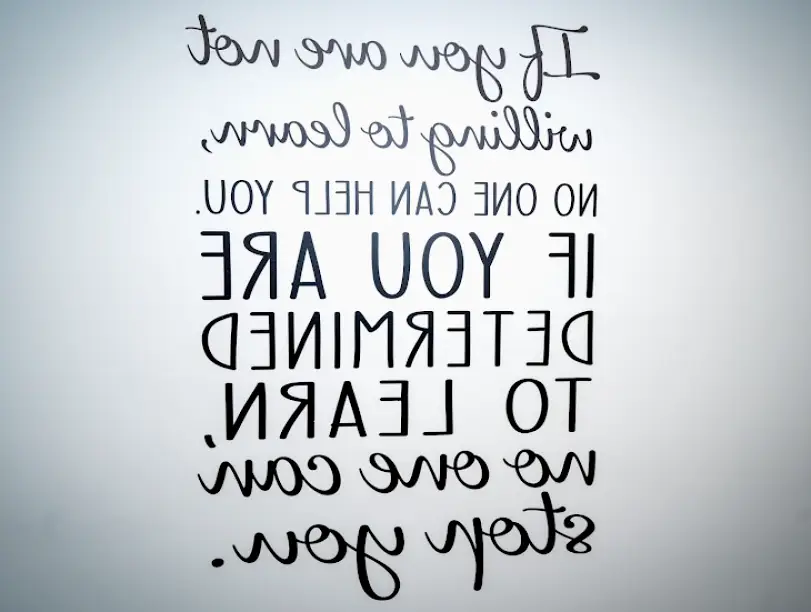 If you are not
willing to learn,
NO ONE CAN HELP YOU.
IF YOU ARE
DETERMINED
TO LEARN,
no one can
stop you.